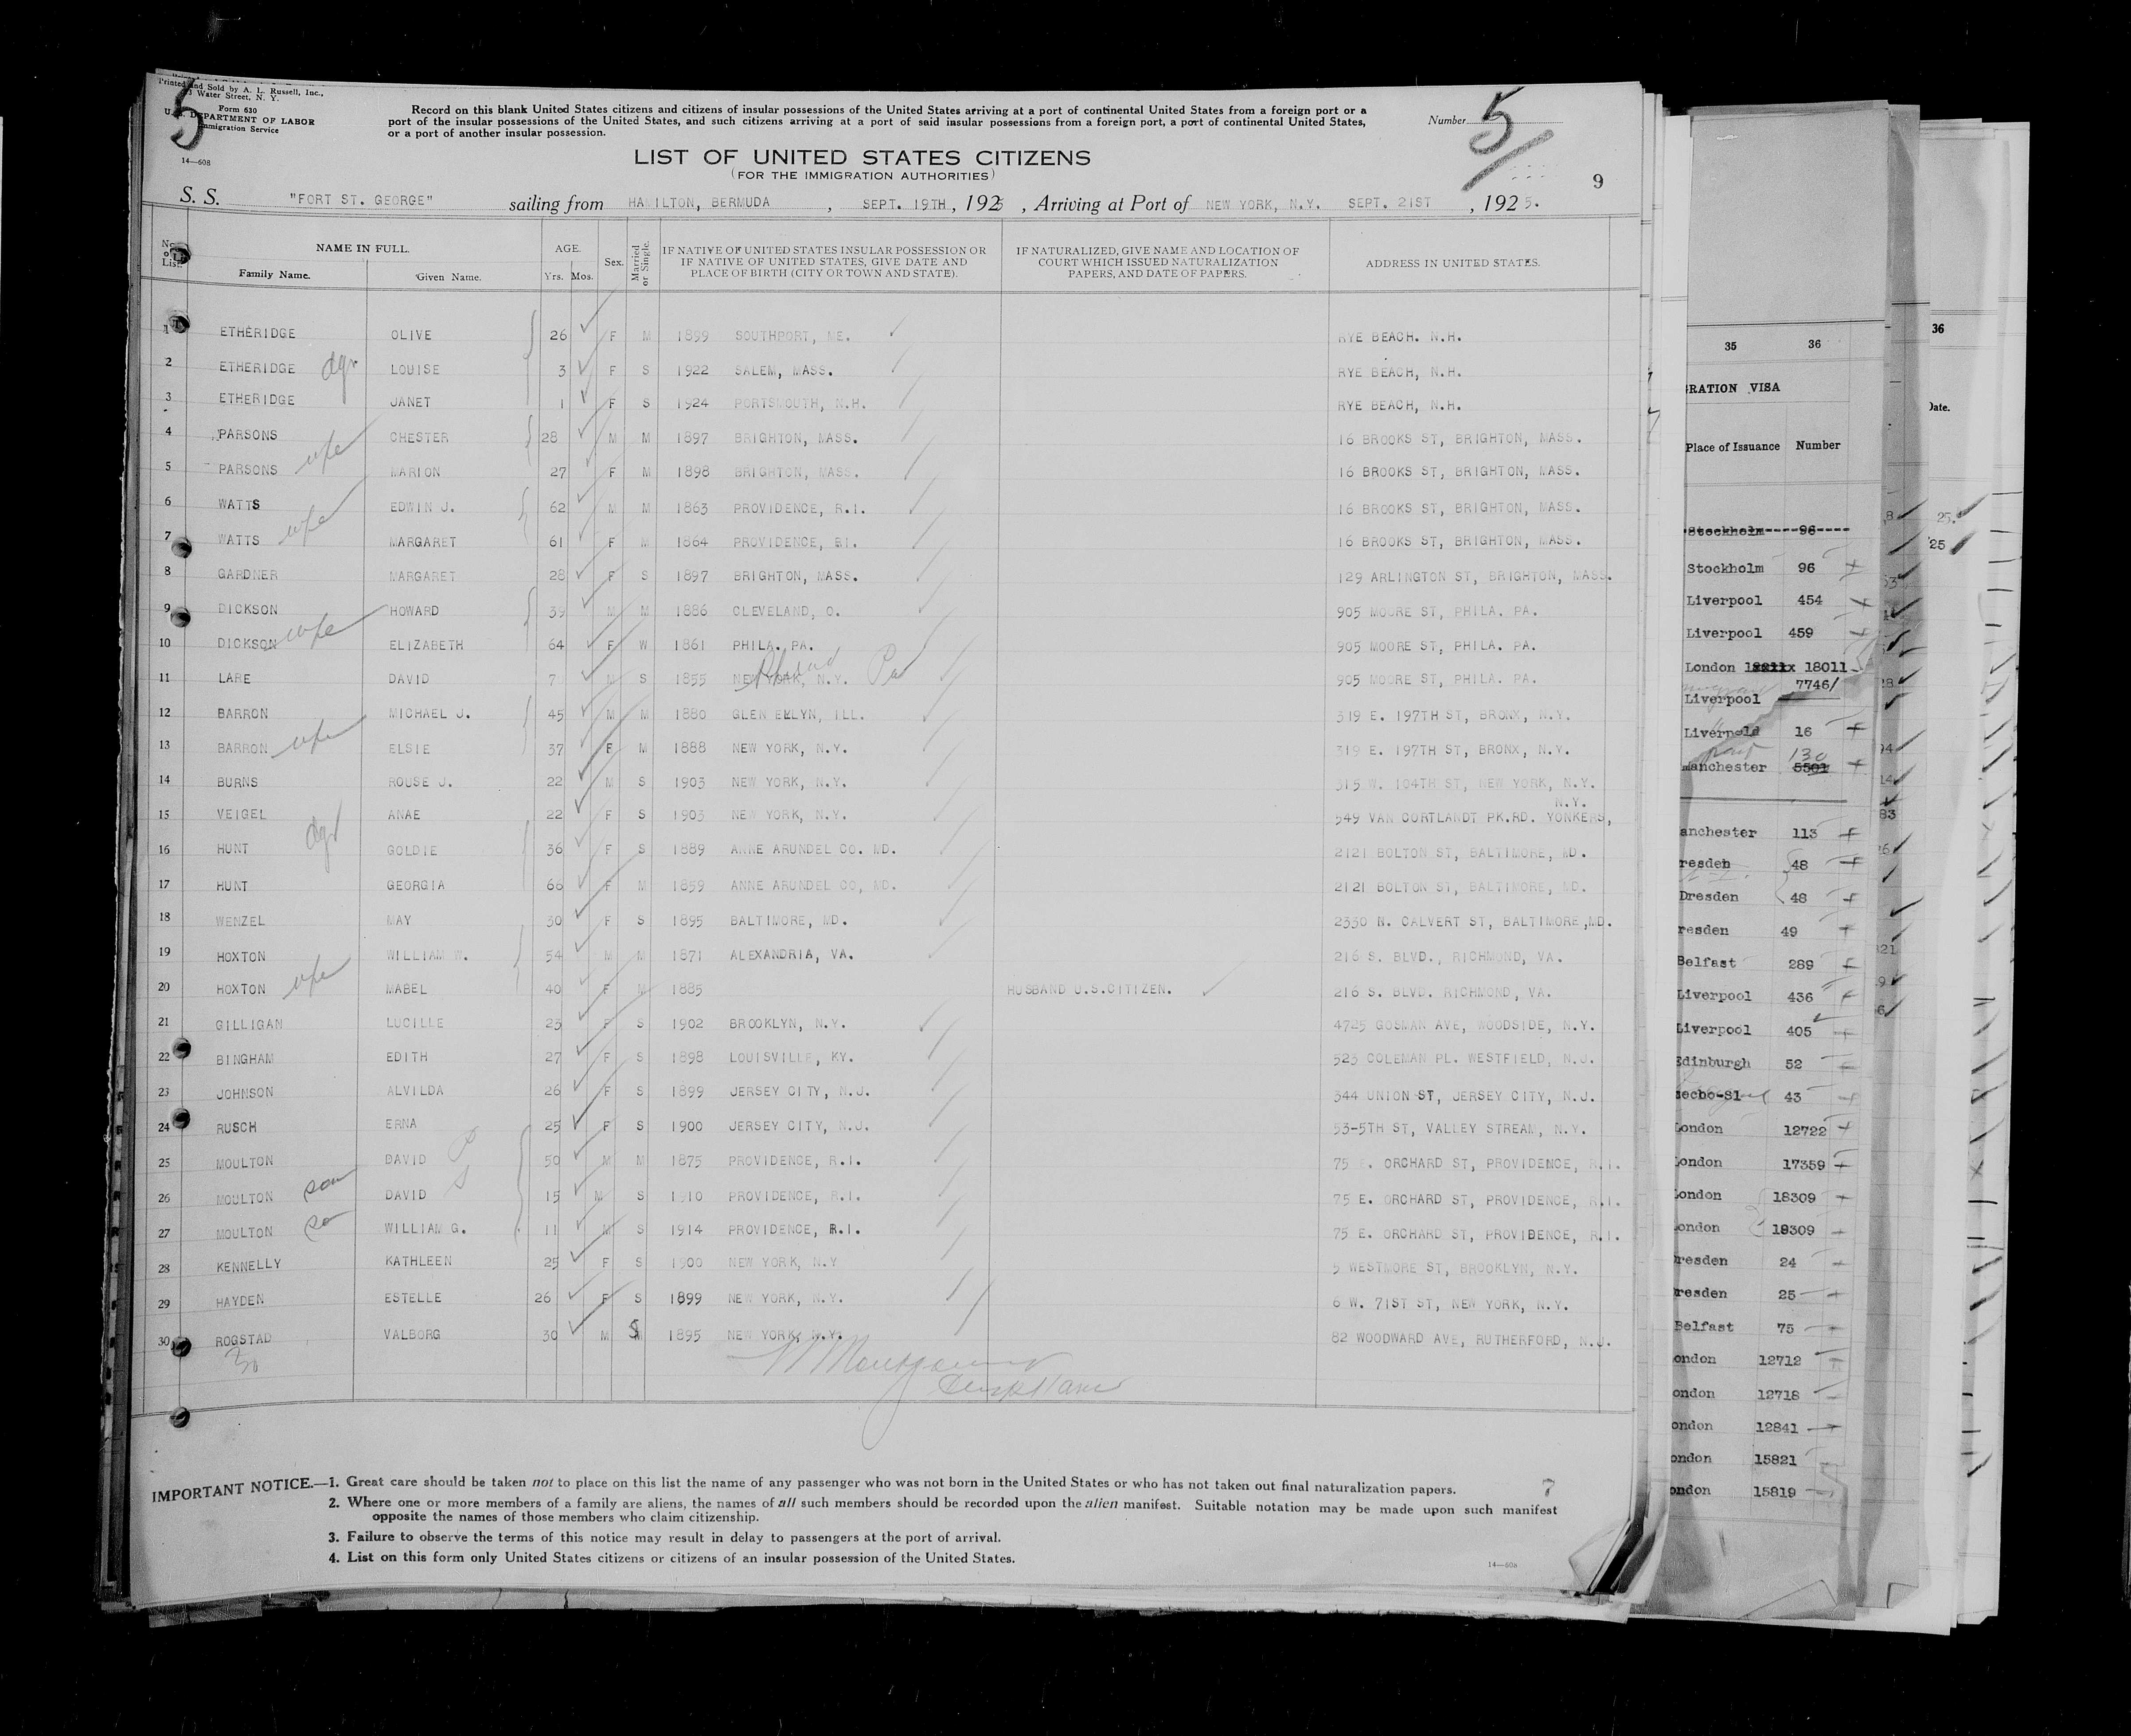 Printed and Sold by A. L. Russell, Inc.,
Water Street, N. Y.
Form 630
U.S. DEPARTMENT OF LABOR
Immigration Service
14—608
5
Record on this blank United States citizens and citizens of insular possessions of the United States arriving at a port of continental United States from a foreign port or a
port of the insular possessions of the United States, and such citizens arriving at a port of said insular possessions from a foreign port, a port of continental United States,
or a port of another insular possession.
Number 5
LIST OF UNITED STATES CITIZENS
(FOR THE IMMIGRATION AUTHORITIES)
9
S. S. "FORT ST. GEORGE" sailing from HAMILTON, BERMUDA, SEPT. 19TH, 1925, Arriving at Port of NEW YORK, N.Y. SEPT. 21ST, 1925.
No. on List. NAME IN FULL. Family Name. Given Name. AGE. Yrs. Mos. Sex. Married or Single. IF NATIVE OF UNITED STATES INSULAR POSSESSION OR IF NATIVE OF UNITED STATES, GIVE DATE AND PLACE OF BIRTH (CITY OR TOWN AND STATE). IF NATURALIZED, GIVE NAME AND LOCATION OF COURT WHICH ISSUED NATURALIZATION PAPERS, AND DATE OF PAPERS. ADDRESS IN UNITED STATES.
1 ETHERIDGE OLIVE 26 F M 1899 SOUTHPORT, ME. RYE BEACH. N.H.
2 ETHERIDGE dgr LOUISE 3 F S 1922 SALEM, MASS. RYE BEACH, N.H.
3 ETHERIDGE JANET 1 F S 1924 PORTSMOUTH, N.H. RYE BEACH, N.H.
4 PARSONS CHESTER 28 M M 1897 BRIGHTON, MASS. 16 BROOKS ST, BRIGHTON, MASS.
5 PARSONS wife MARION 27 F M 1898 BRIGHTON, MASS. 16 BROOKS ST, BRIGHTON, MASS.
6 WATTS EDWIN J. 62 M M 1863 PROVIDENCE, R.I. 16 BROOKS ST, BRIGHTON, MASS.
7 WATTS wife MARGARET 61 F M 1864 PROVIDENCE, RI. 16 BROOKS ST, BRIGHTON, MASS.
8 GARDNER MARGARET 28 F S 1897 BRIGHTON, MASS. 129 ARLINGTON ST, BRIGHTON, MASS.
9 DICKSON HOWARD 39 M M 1886 CLEVELAND, O. 905 MOORE ST, PHILA. PA.
10 DICKSON wife ELIZABETH 64 F W 1861 PHILA. PA. 905 MOORE ST, PHILA. PA.
11 LARE DAVID 7 M S 1855 NEW YORK, N.Y. Pa 905 MOORE ST, PHILA. PA.
12 BARRON MICHAEL J. 45 M M 1880 GLEN ELLYN, ILL. 319 E. 197TH ST, BRONX, N.Y.
13 BARRON wife ELSIE 37 F M 1888 NEW YORK, N.Y. 319 E. 197TH ST, BRONX, N.Y.
14 BURNS ROUSE J. 22 M S 1903 NEW YORK, N.Y. 315 W. 104TH ST, NEW YORK, N.Y.
15 VEIGEL ANAE 22 F S 1903 NEW YORK, N.Y. 549 VAN CORTLANDT PK.RD. YONKERS, N.Y.
16 HUNT dgr GOLDIE 36 F S 1889 ANNE ARUNDEL CO. MD. 2121 BOLTON ST, BALTIMORE, MD.
17 HUNT GEORGIA 66 F M 1859 ANNE ARUNDEL CO, MD. 2121 BOLTON ST, BALTIMORE, MD.
18 WENZEL MAY 30 F S 1895 BALTIMORE, MD. 2330 N. CALVERT ST, BALTIMORE,MD.
19 HOXTON WILLIAM W. 54 M M 1871 ALEXANDRIA, VA. 216 S. BLVD., RICHMOND, VA.
20 HOXTON wife MABEL 40 F M 1885 HUSBAND U.S.CITIZEN. 216 S. BLVD. RICHMOND, VA.
21 GILLIGAN LUCILLE 23 F S 1902 BROOKLYN, N.Y. 4725 GOSMAN AVE, WOODSIDE, N.Y.
22 BINGHAM EDITH 27 F S 1898 LOUISVILLE, KY. 523 COLEMAN PL. WESTFIELD, N.J.
23 JOHNSON ALVILDA 26 F S 1899 JERSEY CITY, N.J. 344 UNION ST, JERSEY CITY, N.J.
24 RUSCH ERNA 25 F S 1900 JERSEY CITY, N.J. 53-5TH ST, VALLEY STREAM, N.Y.
25 MOULTON DAVID P 50 M M 1875 PROVIDENCE, R.I. 75 E. ORCHARD ST, PROVIDENCE, R.I.
26 MOULTON son DAVID S 15 M S 1910 PROVIDENCE, R.I. 75 E. ORCHARD ST, PROVIDENCE, R.I.
27 MOULTON so WILLIAM G. 11 M S 1914 PROVIDENCE, R.I. 75 E. ORCHARD ST, PROVIDENCE, R.I.
28 KENNELLY KATHLEEN 25 F S 1900 NEW YORK, N.Y 5 WESTMORE ST, BROOKLYN, N.Y.
29 HAYDEN ESTELLE 26 F S 1899 NEW YORK, N.Y. 6 W. 71ST ST, NEW YORK, N.Y.
30 ROGSTAD VALBORG 30 M S 1895 NEW YORK, N.Y. 82 WOODWARD AVE, RUTHERFORD, N.J.
30
IMPORTANT NOTICE.—1. Great care should be taken not to place on this list the name of any passenger who was not born in the United States or who has not taken out final naturalization papers.
7
2. Where one or more members of a family are aliens, the names of all such members should be recorded upon the alien manifest. Suitable notation may be made upon such manifest
opposite the names of those members who claim citizenship.
3. Failure to observe the terms of this notice may result in delay to passengers at the port of arrival.
4. List on this form only United States citizens or citizens of an insular possession of the United States.
14—608
35 36
GRATION VISA
Place of Issuance Number
Stockholm 96
Stockholm 96
Liverpool 454
Liverpool 459
London 18011
Liverpool 7746/
Liverpool 16
manchester 5501 130
anchester 113
resden 48
Dresden 48
resden 49
Belfast 289
Liverpool 436
Liverpool 405
Edinburgh 52
zecho-Sl 43
London 12722
London 17359
London 18309
ondon 18309
resden 24
resden 25
Belfast 75
ondon 12712
ondon 12718
ondon 12841
ondon 15821
ondon 15819
36
Date.
25.
25